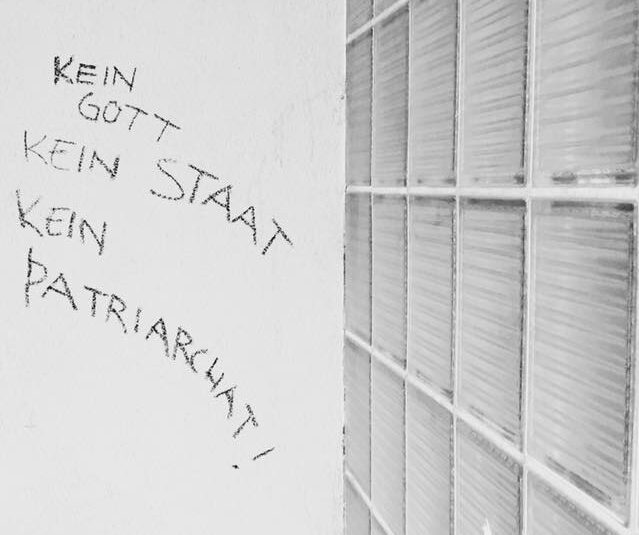 KEIN
GOTT
KEIN STAAT
KEIN
PATRIARCHAT!